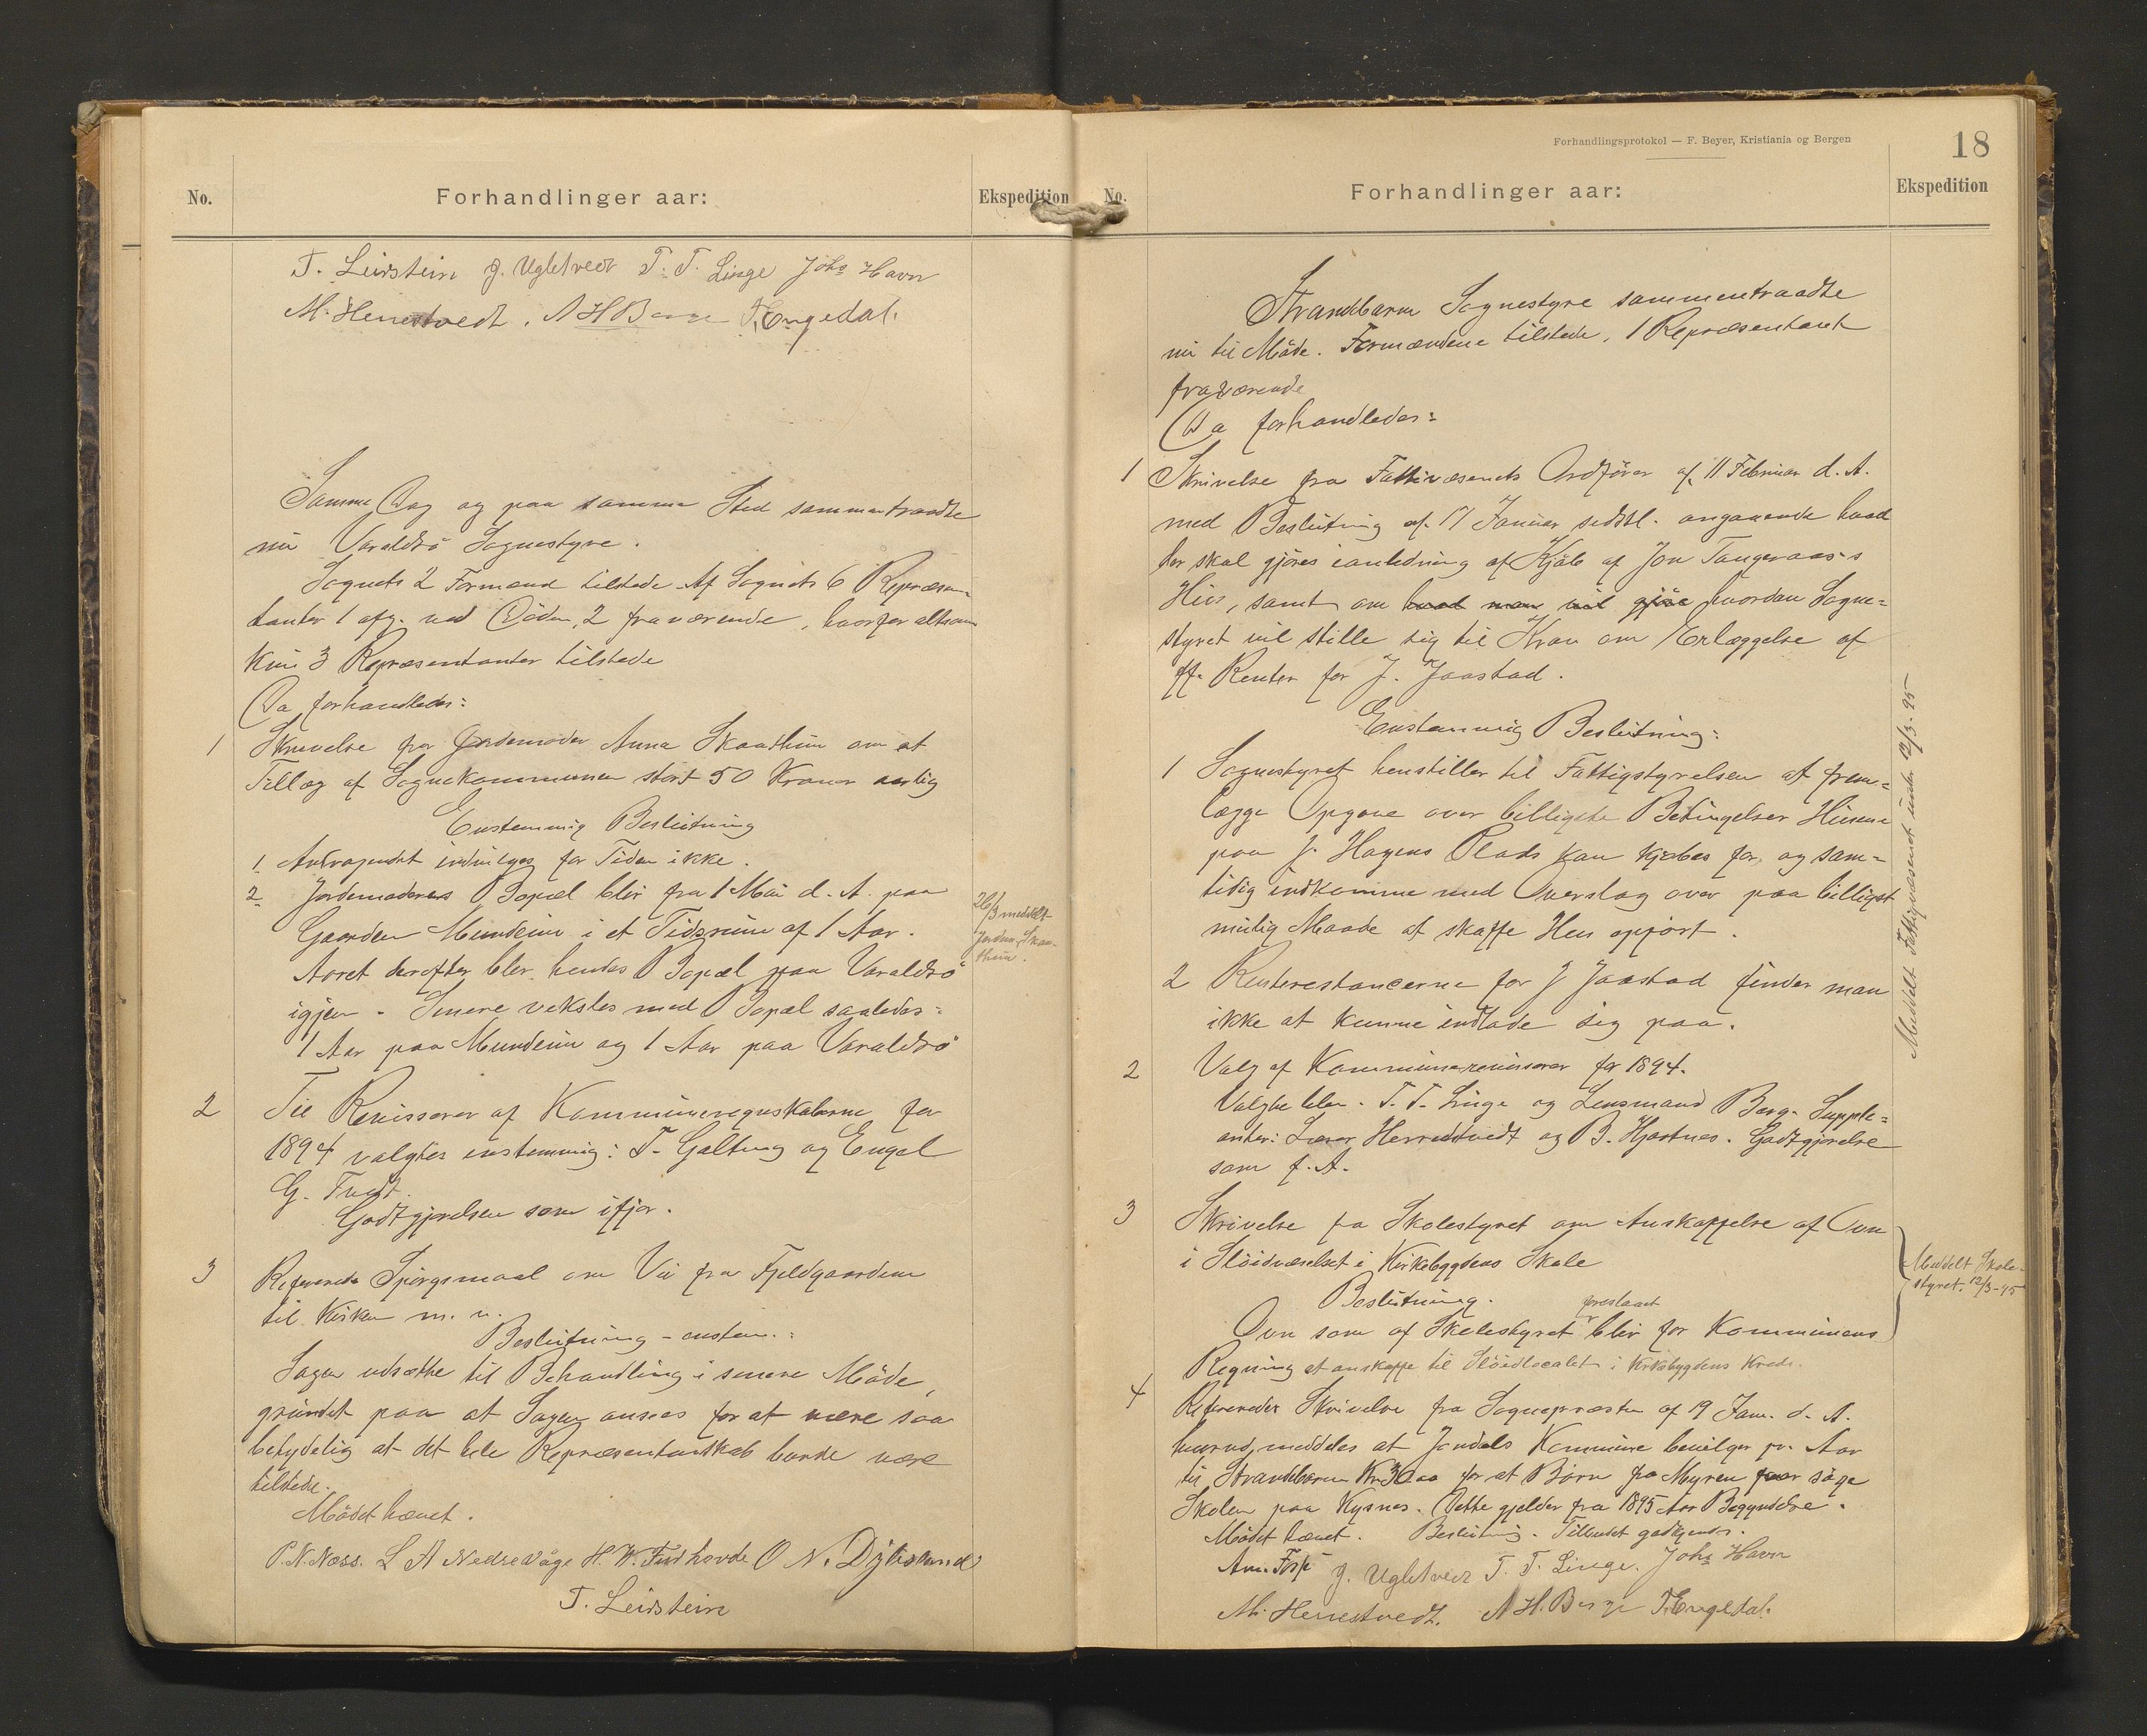 No.
Forhandlinger aar:
Ekspedition
T. Leirstein J. Ugletvedt T. T. Linge Johs Havn
M. Herrestvedt. A H Berge T. Engedal.
Samme Dag og paa samme Sted sammentraadte
nu Varaldsö Sognestyre.
Sognets 2 Formænd tilstede. Af Sognets 6 Repræsen-
tanter 1 afg. ved Döden, 2 fraværende, hvorfor altsaa
kun 3 Repræsentanter tilstede
Da forhandledes:
1 Skrivelse fra Jordemoder Anna Skaathun om et
Tillæg af Sognekommunen stort 50 Kroner aarlig
Enstemmig Beslutning
1. Andragendet indvilges for Tiden ikke.
2 Jordemoderens Bopæl blir fra 1 Mai d. A. paa
Gaarden Mundeim i et Tidsrum af 1 Aar.
Aaret derefter blir hendes Bopæl paa Varaldsö
igjen. Senere veksles med Bopæl saaledes:
1 Aar paa Mundeim og 1 Aar paa Varaldsö
26/3 meddelt
Jordm. Skaa-
thun.
2 Til Revisorer af Kommuneregnskaberne for
1894 valgtes enstemmig: T. Galtung og Engel
G. Tvedt.
Godtgjørelsen som ifjor.
3 Refereredes Spörgsmaal om Vei fra Fjeldgaardene
til Kirken m. v.
Beslutning - enstem.:
Sagen udsættes til Behandling i senere Möde,
grundet paa at Sagen ansees for at være saa
betydelig at det hele Repræsentantskab burde være
tilstede.
Mödet hævet.
P. N. Næss. L A Nedrevåge H. W. Furhovde O N. Djuvsland
T. Leirstein
Forhandlingsprotokol — F. Beyer, Kristiania og Bergen
18
No.
Forhandlinger aar:
Ekspedition
Strandebarm Sognestyre sammentraadte
nu til Möde. Formændene tilstede, 1 Repræsentant
fraværende
Da forhandledes:
1 Skrivelse fra Fattivæsenets Ordförer af 11 Februar d. A.
med Beslutning af 17 Januar sidstl. angaaende hvad
der skal gjöres ianledning af Kjöb af Jon Tangeraas's
Hus, samt om hvad man vil gjöre hvordan Sogne=
styret vil stille sig til Krav om Erlæggelse af
ff. Renter for J. Jaastad.
Enstemmig Beslutning:
1 Sognestyret henstiller til Fattigstyrelsen at frem=
lægge Opgave over billigste Betingelser Husene
paa J. Hagens Plads kan kjøbes for, og sam=
tidig indkomme med Overslag over paa billigst
mulig Maade at skaffe Hus opfört.
2 Renterestancerne for J Jaastad finder man
ikke at kunne indlade sig paa.
Meddelt Fattigvæsenet under 12/3-95
2 Valg af Kommunerevisorer for 1894.
Valgte blev. T. T. Linge og Lensmand Berg. Supple=
anter: Lærer Herrestvedt og B. Hjartnes. Godtgjørelse
som f. A.
3 Skrivelse fra Skolestyret om Anskaffelse af Ovn
i Slöidværelset i Kirkebygdens Skole
Beslutning.
foreslaaet
Ovn som af Skolestyret blir for Kommunens
Regning at anskaffe til Slöidlocalet i Kirkebygdens Kreds.
Meddelt Skole-
styret. 12/3-95
4 Refereredes Skrivelse fra Sognepræsten af 19 Jan. d. A.
hvorved meddeles at Jondals Kommune bevilger pr. Aar
til Strandebarm Kr 30.00 for at Børn fra Myren faar söge
Skolen paa Kysnes. Dette gjelder fra 1895 Aars Begyndelse.
Mödet hævet. Beslutning. Tilbudet godkjendes.
J. Ugletvedt T. T. Linge. Johs Havn
M. Herrestvedt. A H. Berge T. Engedal.